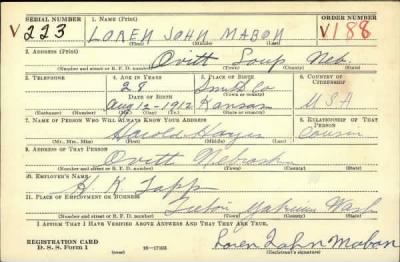 SERIAL NUMBER 1. NAME (Print) ORDER NUMBER
V 223 LOREN JOHN MABON V 188
(First) (Middle) (Last)
2. ADDRESS (Print)
Ovitt Loup Neb.
(Number and street or R. F. D. number) (Town) (County) (State)
3. TELEPHONE 4. AGE IN YEARS 5. PLACE OF BIRTH 6. COUNTRY OF CITIZENSHIP
28 Smith Co
DATE OF BIRTH (Town or county)
Aug 12-1912 Kansas U S A
(Exchange) (Number) (Mo.) (Day) (Yr.) (State or country)
7. NAME OF PERSON WHO WILL ALWAYS KNOW YOUR ADDRESS 8. RELATIONSHIP OF THAT PERSON
Harold Hayes Cousin
(Mr., Mrs., Miss) (First) (Middle) (Last)
9. ADDRESS OF THAT PERSON
Ovitt Nebraska
(Number and street or R. F. D. number) (Town) (County) (State)
10. EMPLOYER'S NAME
H. K. Tapp
11. PLACE OF EMPLOYMENT OR BUSINESS
Yakima Wash
(Number and street or R. F. D. number) (Town) (County) (State)
I AFFIRM THAT I HAVE VERIFIED ABOVE ANSWERS AND THAT THEY ARE TRUE.
REGISTRATION CARD
D. S. S. Form 1 16—17105 Loren John Mabon
(Registrant's signature)